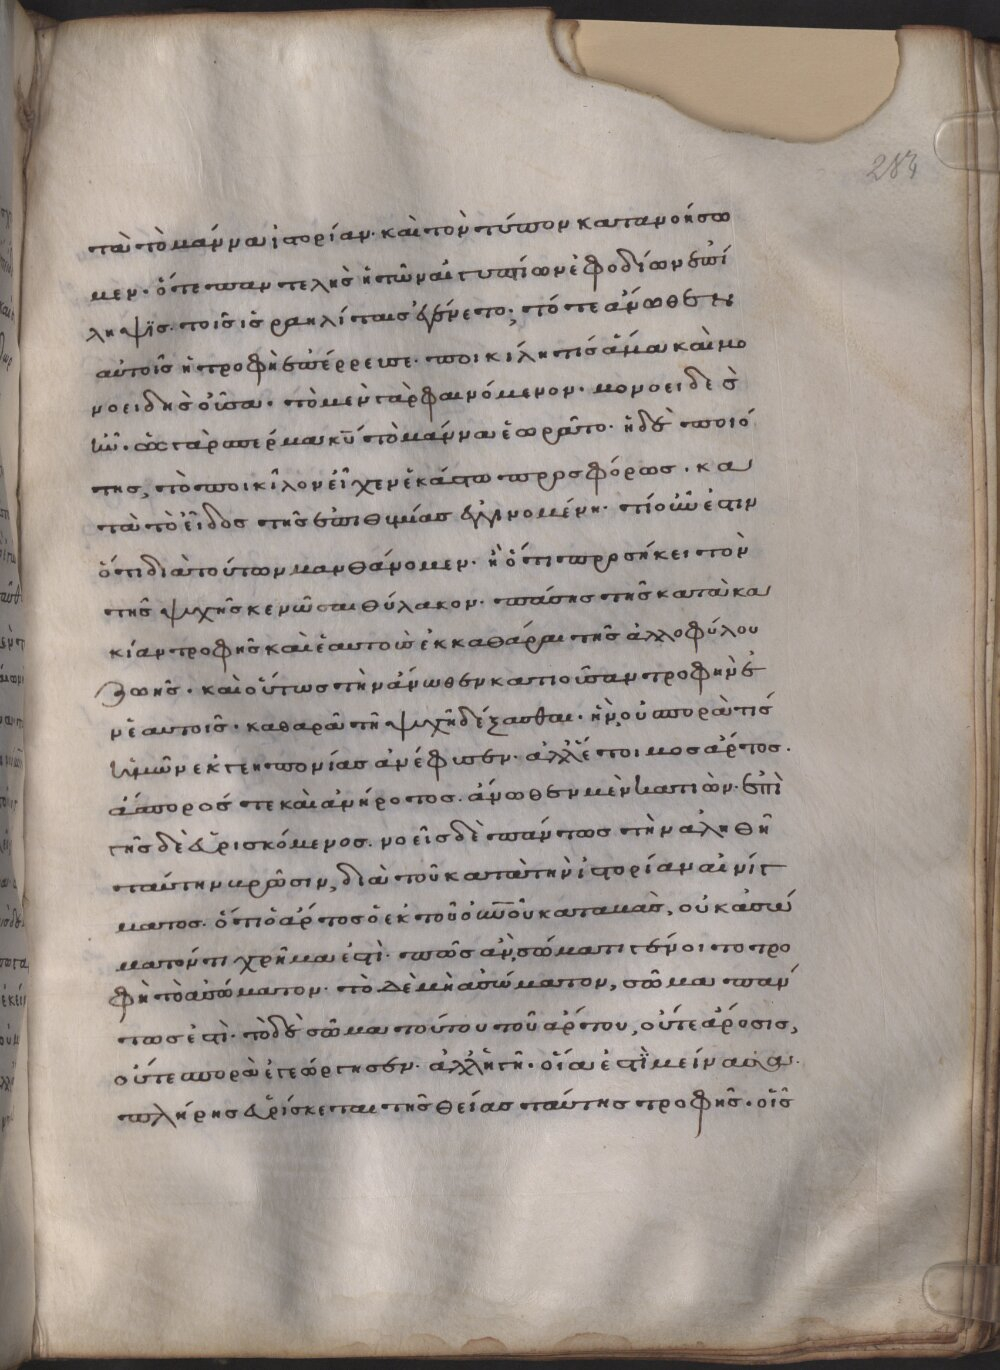 284
τὰ τὸ μάννα ἱστορίαν· καὶ τὸν τύπον κατανοήσω
μεν· ὅτε παντελὴς ἡ τῶν αἰγυπτίων ἐφοδίων ἐπί
ληψις τοῖς ἰσραηλίταις ἐγένετο, τότε ἄνωθεν
αὐτοῖς ἡ τροφὴ ἐπέρρει τε· ποικίλη τίς ἅμα καὶ μο
νοειδὴς οὖσα· τὸ μὲν γὰρ φαινόμενον· μονοειδὲς
ἦν· ὡς γὰρ σπέρμα κν τὸ μάννα ἑωρᾶτο· ἡ δὲ ποιό
της, τὸ ποικίλον εἶχεν ἑκάστω προσφόρως· κα
τὰ τὸ εἶδος τῆς ἐπιθυμίας γινομένη· τί οὖν ἐστιν
ὅτι διὰ τούτων μανθάνομεν· ἢ ὅτι προσήκει τὸν
τῆς ψυχῆς κενῶσαι θύλακον· πάσης τῆς κατὰ κα
κίαν τροφῆς καὶ ἑαυτοὺς ἐκκαθάραι τῆς ἀλλοφύλου
ζωῆς· καὶ οὕτως τὴν ἄνωθεν κατιοῦσαν τροφὴν ἐ
ν ἑαυτοῖς· καθαρᾶ τῆ ψυχῆ δέξασθαι· ἣν, οὐ σπορὰ τίς
ἡμῶν ἐκ γηπονίας ἀνέφυσεν· ἀλλ' ἕτοιμος ἄρτος·
ἄσπορός τε καὶ ἀνήροτος· ἄνωθεν μὲν κατιὼν· ἐπὶ
γῆς δὲ εὑρισκόμενος· νοεῖς δὲ πάντως τὴν ἀληθῆ
ταύτην βρῶσιν, διὰ τοῦ κατὰ τὴν ἱστορίαν αἰνίγ
ματος· ὅτι ὁ ἄρτος ὁ ἐκ τοῦ οὐνοῦ καταβὰς, οὐκ ἀσώ
ματόν τι χρῆμα ἐστὶ· πῶς ἂν, σώματι γένοιτο τρο
φὴ τὸ ἀσώματον· τὸ δὲ μὴ ἀσώματον, σῶμα πάν
τως ἐστὶ· τὸ δὲ σῶμα τούτου τοῦ ἄρτου, οὔτε ἄροσις,
οὔτε σπορὰ ἐγεώργησεν· ἀλλ' ἡ γῆ· οἵα ἐστὶ μείνασα·
πλήρης εὑρίσκεται τῆς θείας ταύτης τροφῆς· οἷς